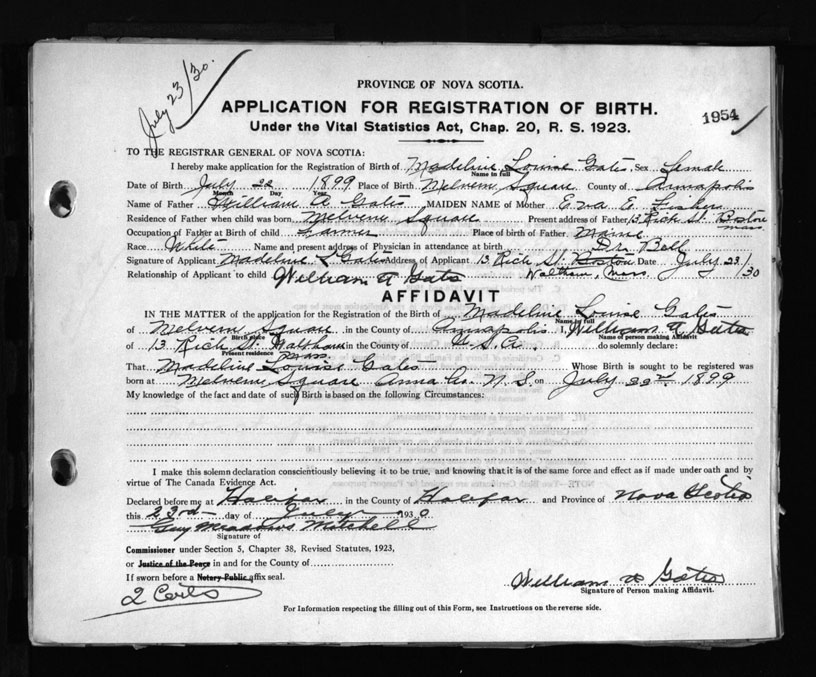 July 23/30.
PROVINCE OF NOVA SCOTIA.
APPLICATION FOR REGISTRATION OF BIRTH.
1954
Under the Vital Statistics Act, Chap. 20, R. S. 1923.
TO THE REGISTRAR GENERAL OF NOVA SCOTIA:
I hereby make application for the Registration of Birth of Madeline Louise Gates Sex Female
Name in full
Date of Birth July 22 1899 Place of Birth Melvern Square County of Annapolis
Month Day Year
Name of Father William A Gates MAIDEN NAME of Mother Eva E.
Residence of Father when child was born Melvern Square Present address of Father 13 Rich St Boston
Mass
Occupation of Father at Birth of child Farmer Place of birth of Father Maine
Race White Name and present address of Physician in attendance at birth Dr Bell
Signature of Applicant Madeline L Gates Address of Applicant 13 Rich St. Boston Date July 23/30
Relationship of Applicant to child William A Gates Waltham, Mass
AFFIDAVIT
IN THE MATTER of the application for the Registration of the Birth of Madeline Louise Gates
Name in full
of Melvern Square in the County of Annapolis I, William A Gates
Birth place Name of person making Affidavit
of 13 Rich St. Waltham in the County of U. S. A. do solemnly declare:
Present residence Mass.
That Madeline Louise Gates Whose Birth is sought to be registered was
born at Melvern Square Anna Co. N. S. on July 22nd 1899
My knowledge of the fact and date of such Birth is based on the following Circumstances:
I make this solemn declaration conscientiously believing it to be true, and knowing that it is of the same force and effect as if made under oath and by
virtue of The Canada Evidence Act.
Declared before me at Halifax in the County of Halifax and Province of Nova Scotia
this 23rd day of July 1930
Guy Meadows Mitchell
Signature of
Commissioner under Section 5, Chapter 38, Revised Statutes, 1923,
or Justice of the Peace in and for the County of
If sworn before a Notary Public affix seal.
William A Gates
Signature of Person making Affidavit.
2 Certs
For Information respecting the filling out of this Form, see Instructions on the reverse side.